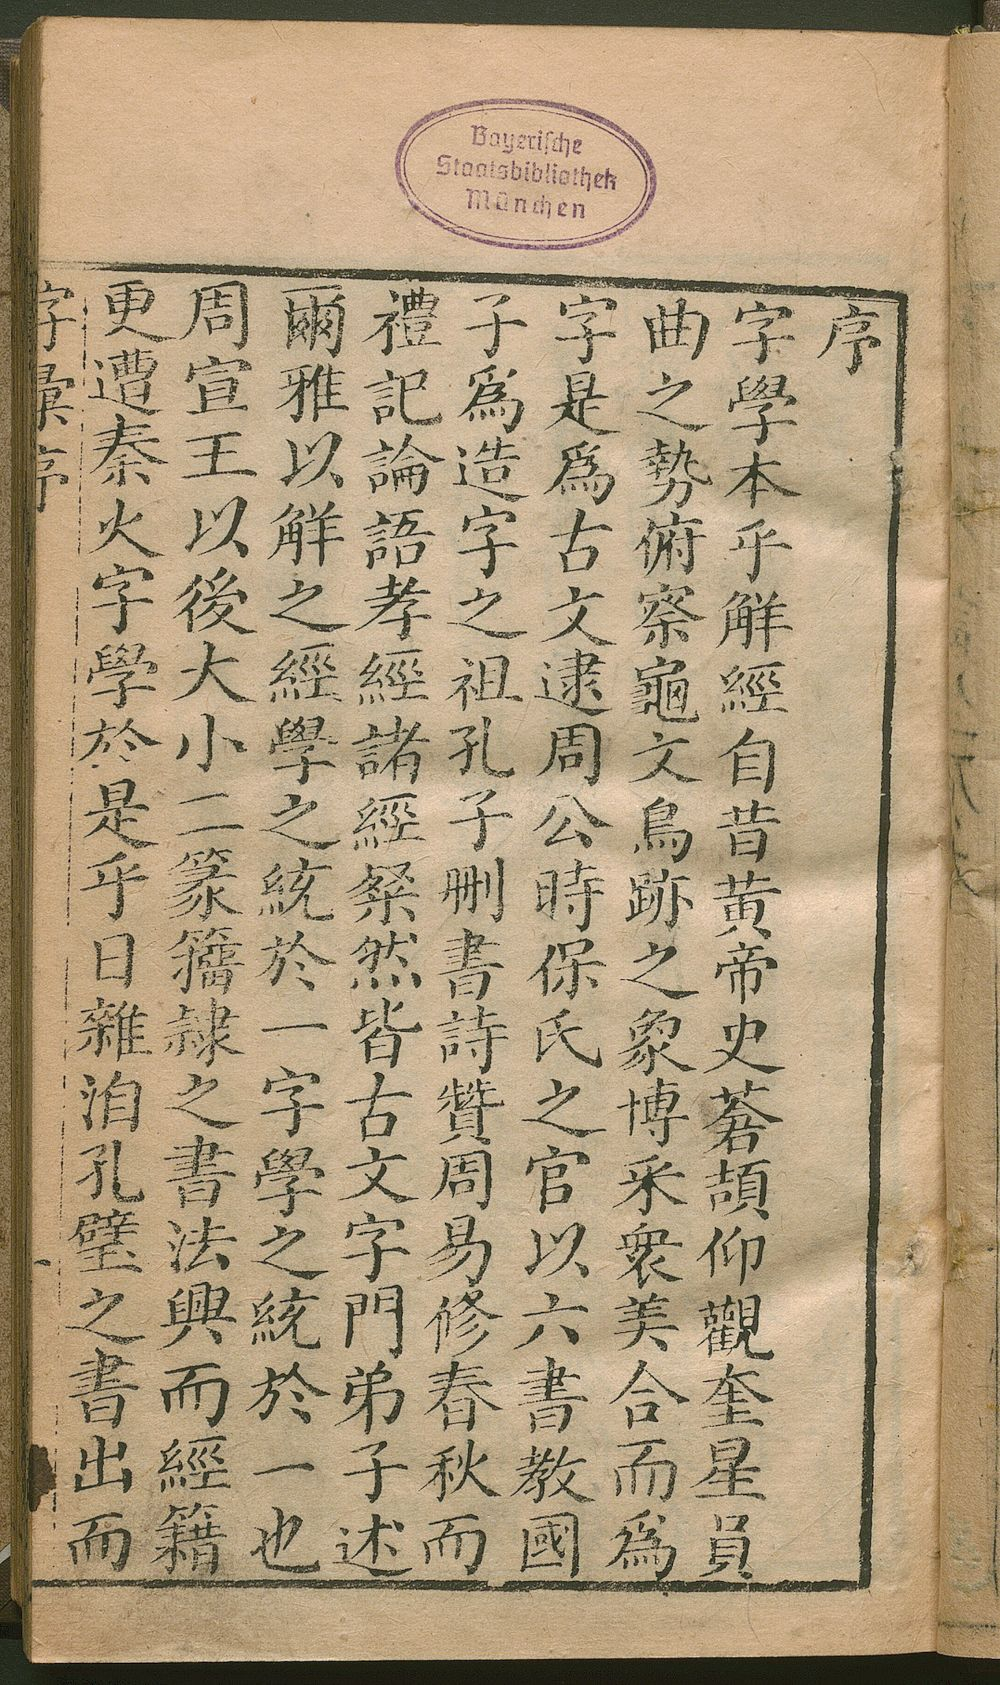 Bayerische
Staatsbibliothek
München
序
字學本乎觧經自昔黄帝史蒼頡仰觀奎星員
曲之勢俯察龜文鳥跡之象博采衆美合而爲
字是爲古文逮周公時保氏之官以六書教國
子爲造字之祖孔子删書詩贊周易修春秋而
禮記論語孝經諸經粲然皆古文字門弟子述
爾雅以觧之經學之統於一字學之統於一也
周宣王以後大小二篆籀隸之書法興而經籍
更遭秦火字學於是乎日雜洎孔壁之書出而
字彙序
一